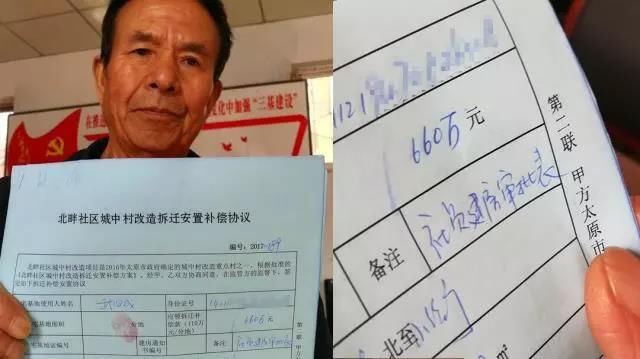 在推进
化中加强“三基建设”
北畔社区城中村改造拆迁安置补偿协议
编号：2017-
北畔社区城中村改造项目是2016年太原市政府确定的城中村改造重点村之一，根据批准的
《北畔社区城中村改造拆迁安置补偿方案》，经甲、乙双方协商同意，在监管方的监督下，签
定如下拆迁安置补偿协议
宅基地使用人姓名
身份证号
宅基地面积
分地
应领拆迁补
偿款（110万
元/分地）
660万
元
宅基地证编号
建房通知
书编号
备注
社员建房审批表
660万元
备注
社员建房审批表
北到
m²
第二联
甲方太原市